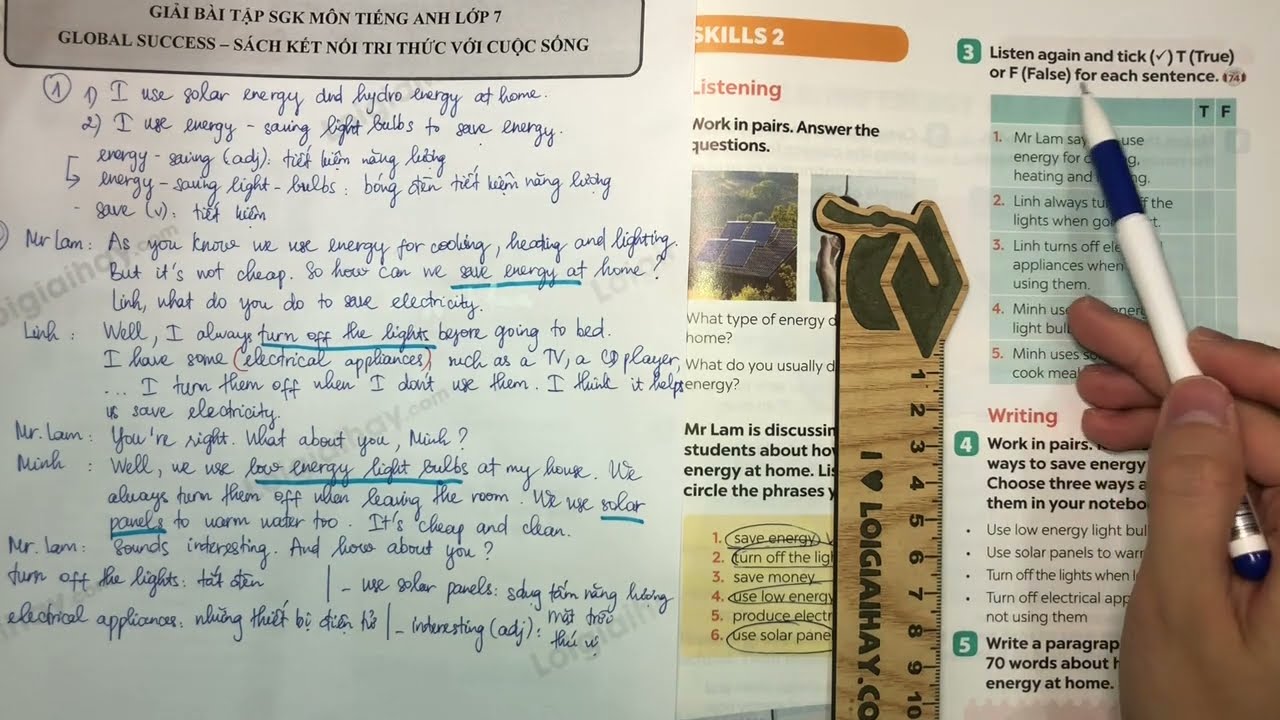 GIẢI BÀI TẬP SGK MÔN TIẾNG ANH LỚP 7
GLOBAL SUCCESS – SÁCH KẾT NỐI TRI THỨC VỚI CUỘC SỐNG
① 1) I use solar energy and hydro energy at home.
2) I use energy - saving light bulbs to save energy.
energy - saving (adj): tiết kiệm năng lượng
↳ energy - saving light - bulbs: bóng đèn tiết kiệm năng lượng
- save (v): tiết kiệm
Mr Lam: As you know we use energy for cooking, heating and lighting.
But it's not cheap. So how can we save energy at home?
Linh, what do you do to save electricity.
Linh: Well, I always turn off the lights before going to bed.
I have some (electrical appliances) such as a TV, a CD player,
... I turn them off when I don't use them. I think it helps
us save electricity.
Mr. Lam: You're right. What about you, Minh?
Minh: Well, we use low energy light bulbs at my house. We
always turn them off when leaving the room. We use solar
panels to warm water too. It's cheap and clean.
Mr. Lam: Sounds interesting. And how about you?
turn off the lights: tắt đèn
electrical appliances: những thiết bị điện tử
- use solar panels: sdụng tấm năng lượng
mặt trời
- interesting (adj): thú vị
Loigiaihay.com
SKILLS 2
Listening
Work in pairs. Answer the
questions.
What type of energy
home?
What do you usually
energy?
Mr Lam is discussin
students about how
energy at home.
circle the phrases
1. save energy
2. turn off the
3. save money
4. use low energy
5. produce
6. use solar
I ♥ LOIGIAIHAY.CO
1 2 3 4 5 6 7 8 9 10
3 Listen again and tick (✓) T (True)
or F (False) for each sentence. 74
T F
1. Mr Lam use
energy for
heating and
2. Linh always the
lights when
3. Linh turns off
appliances when
using them.
4. Minh
light
5. Minh uses
cook
Writing
4 Work in pairs.
ways to save energy
Choose three ways
them in your
• Use low energy light
• Use solar panels to
• Turn off the lights when
• Turn off electrical
not using them
5 Write a
70 words about
energy at home.